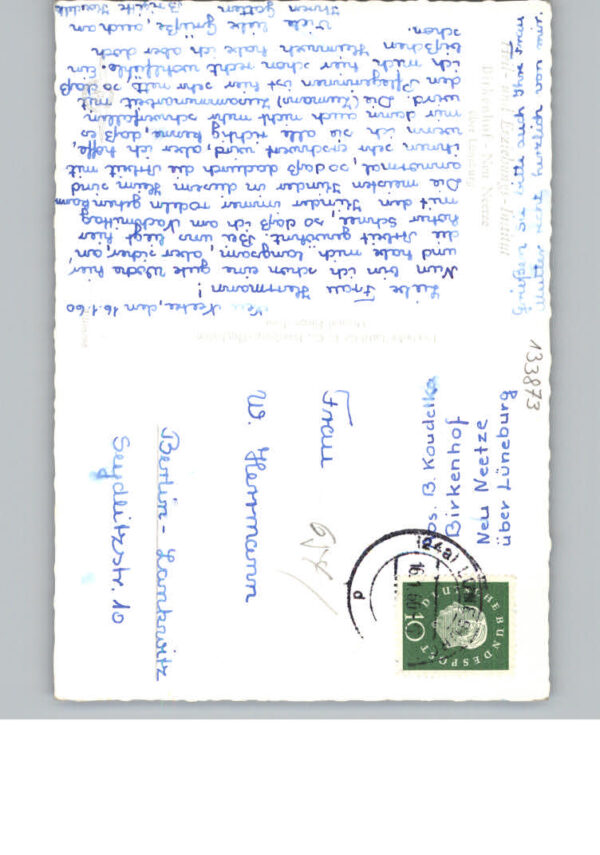 Neu Neetze, den 16.1.60
Liebe Frau Herrmann!
Nun bin ich schon eine gute Woche hier
und habe mich langsam, aber sicher, an
die Arbeit gewöhnt. Bei uns liegt hier
hoher Schnee, so daß ich am Nachmittag
mit den Kinder immer rodeln gehen kann.
Die meisten Kinder in diesem Heim sind
annormal, so daß dadurch die Arbeit mit
ihnen sehr erschwert wird, aber ich hoffe,
wenn ich sie alle richtig kenne, daß es
mir dann auch nicht mehr schwerfallen
wird. Die Zusammenarbeit mit
den Pflegerinnen ist hier sehr nett so daß
ich mich hier schon recht wohlfühle. Ein
bißchen Heimweh habe ich aber doch
schon.
Viele liebe Grüße, auch an
Ihren Gatten Brigitte Koudelka
Grüßen Sie bitte auch Ihre
Mutter recht herzlich von mir.
Heil- und Erziehungs-Institut
Birkenhof - Neu Neetze
über Lüneburg
133873
Abs. B. Koudelka
Birkenhof
Neu Neetze
über Lüneburg
Frau
W. Herrmann
Berlin-Lankwitz
Seydlitzstr. 10
16.1.60
d
10
DEUTSCHE BUNDESPOST